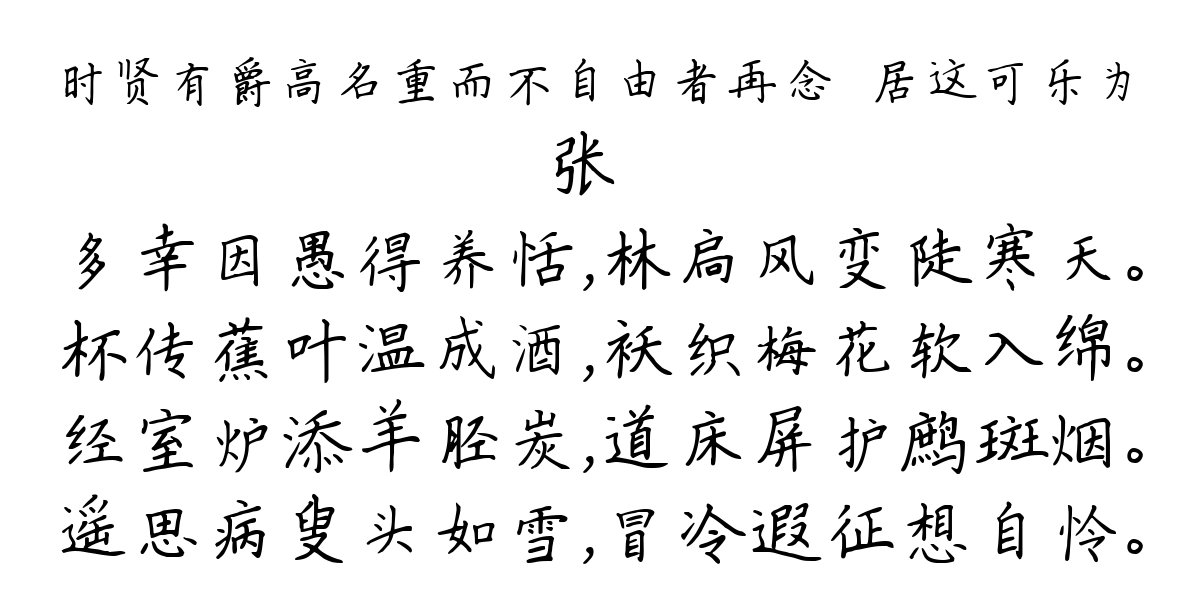 时贤有爵高名重而不自由者再念 居这可乐为
张
多幸因愚得养恬,林扃风变陡寒天。
杯传蕉叶温成酒,袄织梅花软入绵。
经室炉添羊胫炭,道床屏护鹧斑烟。
遥思病叟头如雪,冒冷遐征想自怜。